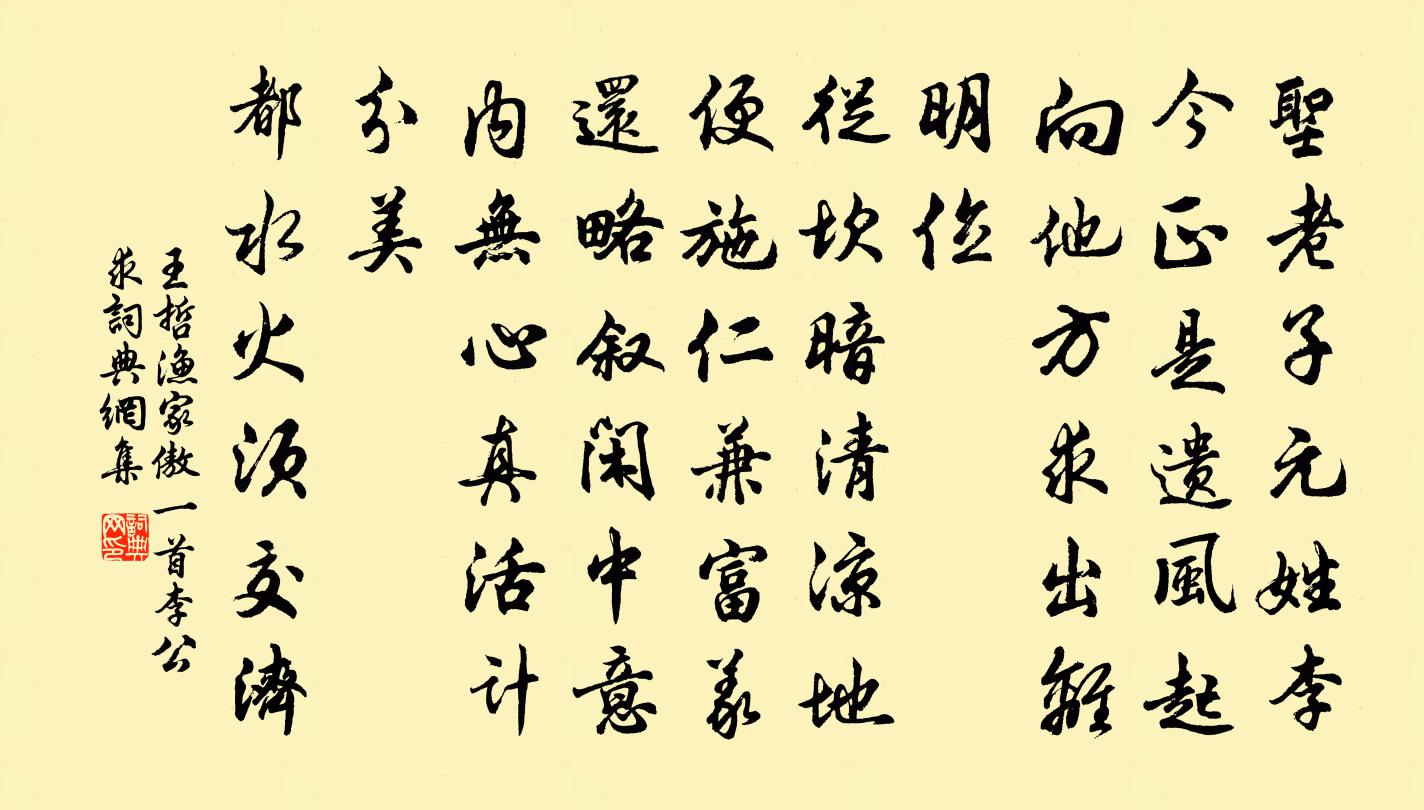 聖老子元姓李
今正是遺風起
向他方求出離
明位
從坎暗清涼地
便施仁兼富義
還略叙閑中意
内無心真活計
分美
都水火須交濟
王哲漁家傲一首李公
求詞典網集
詞典网印